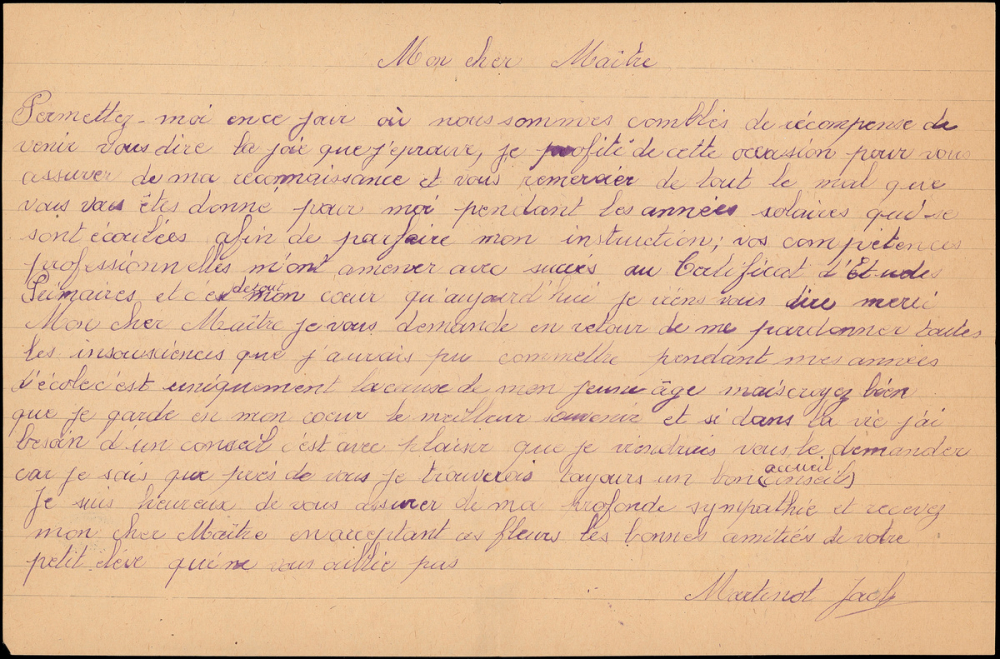 Mon cher Maître
Permettez-moi en ce jour où nous sommes comblés de récompense de
venir vous dire la joie que j'eprouve, je profite de cette occasion pour vous
assurer de ma reconnaissance et vous remercier de tout le mal que
vous vous êtes donne pour moi pendant les années solaires qui se
sont écoulées afin de parfaire mon instruction; vos compétences
professionnelles m'ont amener avec succès au Certificat d'Etudes
Primaires et c'est de tout mon cœur qu'aujourd'hui je viens vous dire merci
Mon cher Maître je vous demande en retour de me pardonner toutes
les insousciences que j'aurais pu commettre pendant mes années
d'école c'est uniquement la cause de mon jeune âge mais croyez bien
que je garde en mon cœur le meilleur souvenir et si dans la vie j'ai
besoin d'un conseil c'est avec plaisir que je viendrais vous le demander
car je sais que près de vous je trouverais toujours un bon accueil (conseil)
Je suis heureux de vous assurer de ma profonde sympathie et recevez
mon cher Maître en acceptant ces fleurs les bonnes amitiés de votre
petit élève qui ne vous oublie pas
Martinot